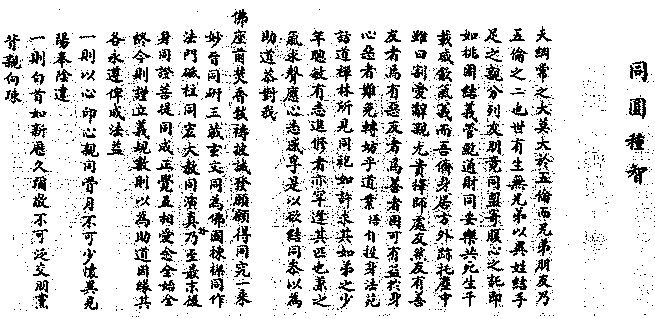 同圓種智
夫綱常之大莫大於五倫而兄弟朋友乃
五倫之二也世有生無兄弟以異姓結手
足之親分列友朋竟同盟寄腹心之託即
如桃園結義管鮑通財同安樂共死生千
載威欽氣義而吾儕身居方外跡托塵中
雖曰割愛辭親尤貴擇師處友然友有善
友者為有惡友者為善者固可有益於身
心惡者難免轉妨乎道業 自投身法苑
訪道禪林所見同袍如許求其如弟之少
年聰敏有志進修者亦罕逢其匹也茲之
氣求聲應心志感孚是以欲結同參以為
助道茲對我
佛座前焚香致禱披誠發願願得同究一乘
妙旨同研三藏玄文同為佛國棟樑同作
法門砥柱同宏大教同演真乃至最末後
身同證菩提同成正覺互相愛念全始全
終今則證立義規數則以為助道因緣其
各永遵俾成法益
一則以心印心親同骨月不可少懷異見
陽奉陰違
一則白首如新歷久彌敬不可泛交朋黨
背親向疎